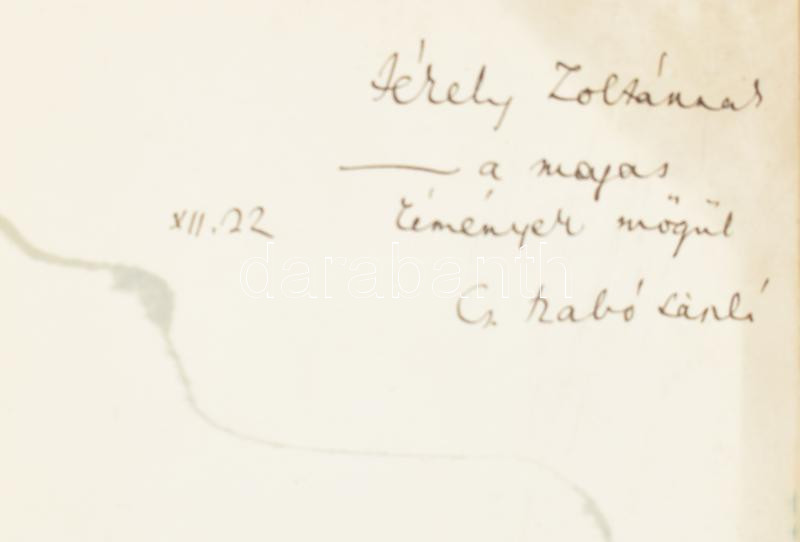 Jékely Zoltánnak
— a magas
kémények mögül
XII. 22
Cs. Szabó László
darabanth